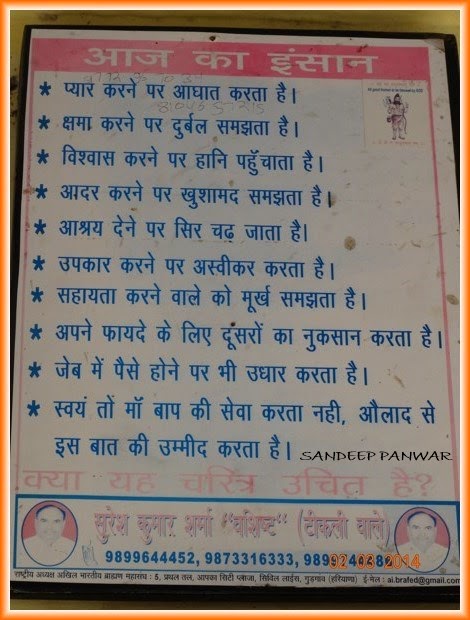 आज का इंसान
* प्यार करने पर आघात करता है।
* क्षमा करने पर दुर्बल समझता है।
* विश्वास करने पर हानि पहुँचाता है।
* आदर करने पर खुशामद समझता है।
* आश्रय देने पर सिर चढ़ जाता है।
* उपकार करने पर अस्वीकर करता है।
* सहायता करने वाले को मूर्ख समझता है।
* अपने फायदे के लिए दूसरों का नुकसान करता है।
* जेब में पैसे होने पर भी उधार करता है।
* स्वयं तों माँ बाप की सेवा करता नही, औलाद से
इस बात की उम्मीद करता है।
SANDEEP PANWAR
क्या यह चरित्र उचित है?
सुरेश कुमार शर्मा "वशिष्ट" (टीकली वाले)
9899644452, 9873316333, 9899244482
राष्ट्रीय अध्यक्ष अखिल भारतीय ब्राह्मण महासंघ : 5, प्रथल तल, आपका सिटी प्लाजा, सिविल लाईस, गुड़गाव (हरियाणा) ई-मेल : ai.brafed@gmail.com